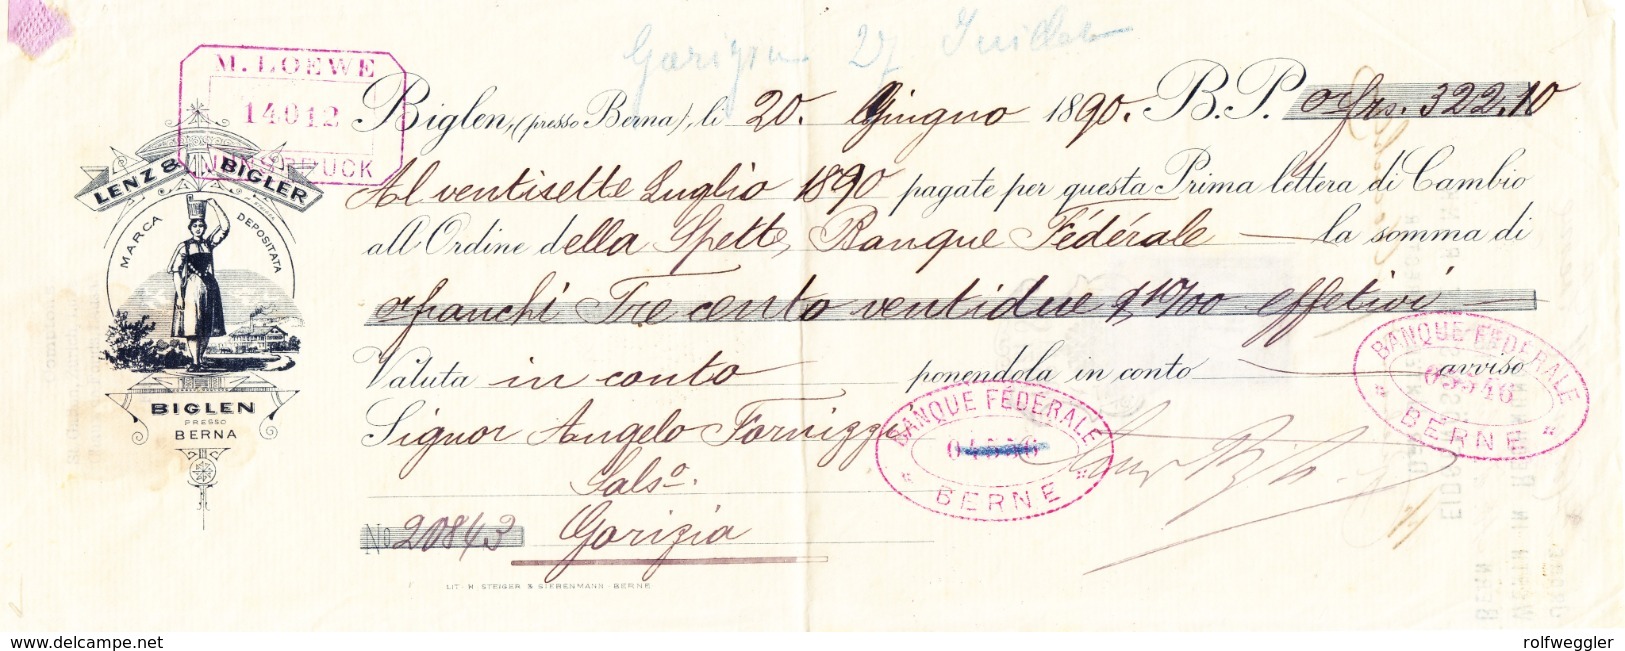 Gorizia 27 Juillet
M. LOEWE
14012
INNSBRUCK
Biglen, (presso Berna), li 20. Giugno 1890. B.P. frs. 322.10
LENZ & BIGLER
MARCA DEPOSITATA
BIGLEN
PRESSO
BERNA
Al ventisette Luglio 1890 pagate per questa Prima lettera di Cambio
all'Ordine della Spett. Banque Fédérale la somma di
franchi Tre cento ventidue & 10/00 effetivi
Valuta in conto ponendola in conto avviso
BANQUE FÉDÉRALE
03546
BERNE
Signor Angelo Fornizzi
BANQUE FÉDÉRALE
BERNE
No 20843 Gorizia
LIT. H. STEIGER & SIEBENMANN - BERNE
delcampe.net
rolfweggler